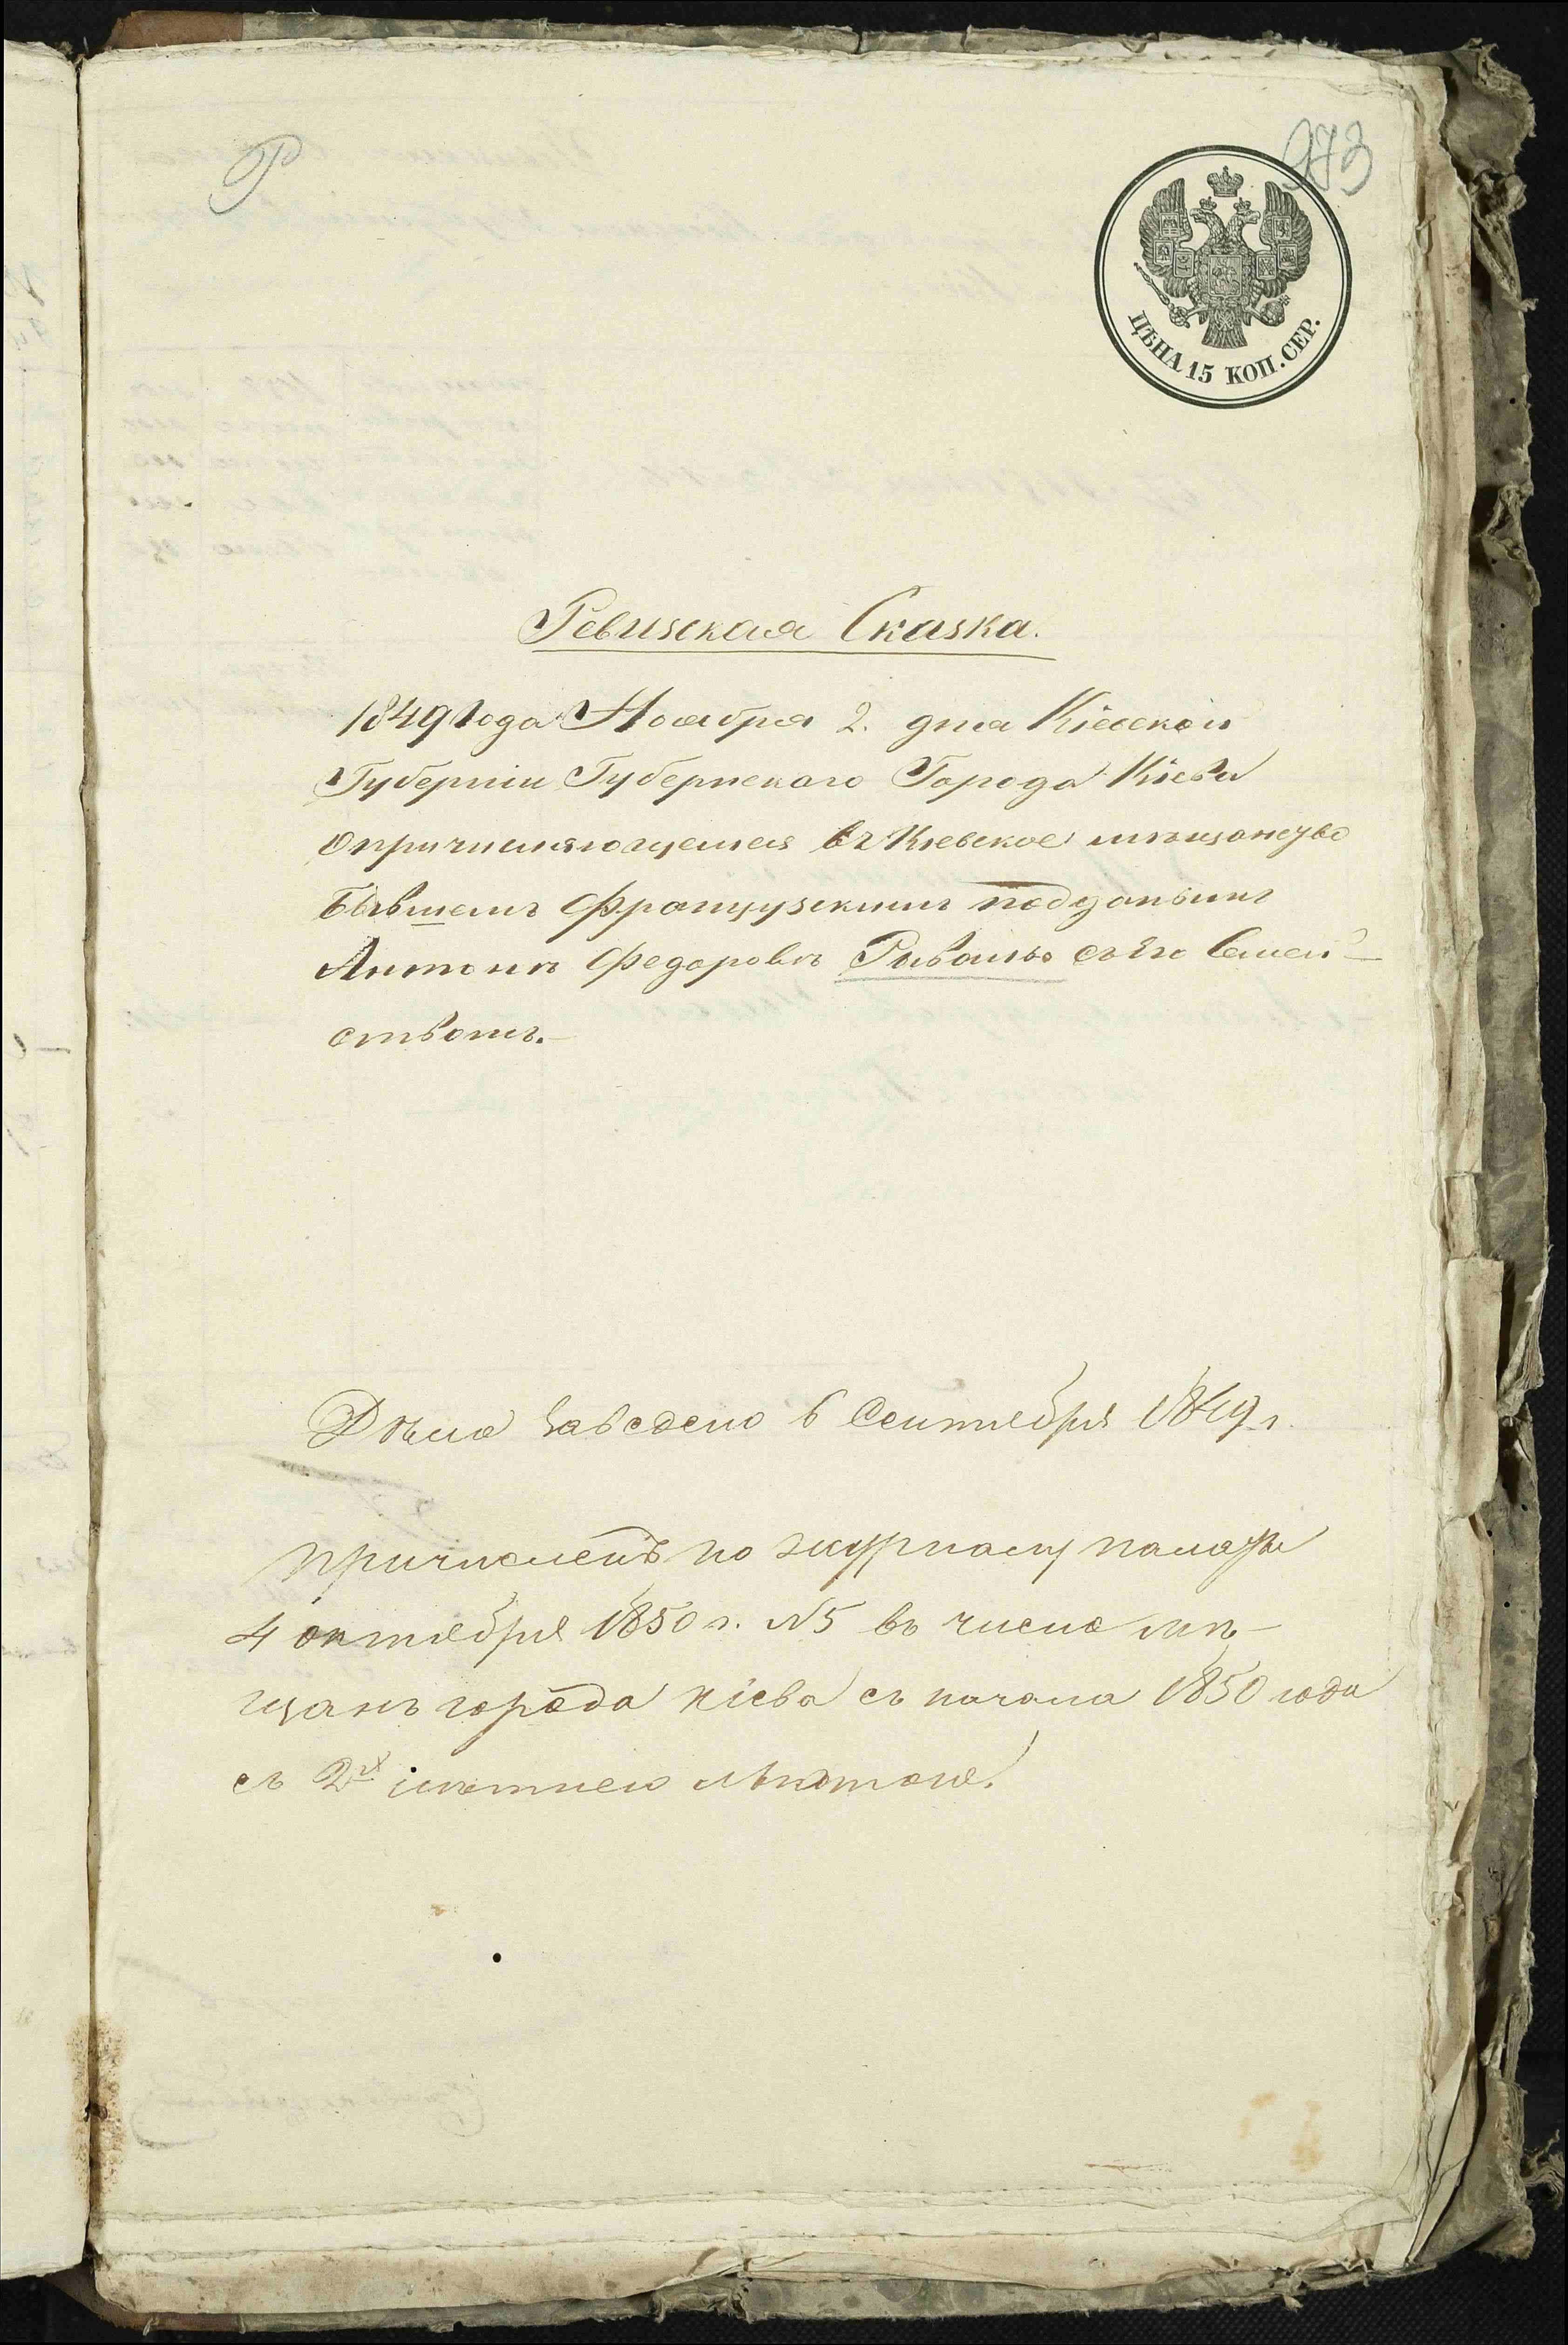 Р
973
ЦѢНА 15 КОП. СЕР.
Ревизская Сказка.
1849 года Ноября 2. дня Кіевской
Губерніи Губернскаго Города Кіева
о причисляющемся въ Кіевское мѣщанство
бывшемъ французскимъ подданнымъ
Антонѣ Федоровѣ Ривальо съ его Семей-
ствомъ.-
Дѣло заведено 6 Сентября 1849 г.
причисленъ по журналу палаты
4 октября 1850 г. №5 въ число мѣ-
щанъ города Кіева съ начала 1850 года
съ 2х лѣтнею льготою.